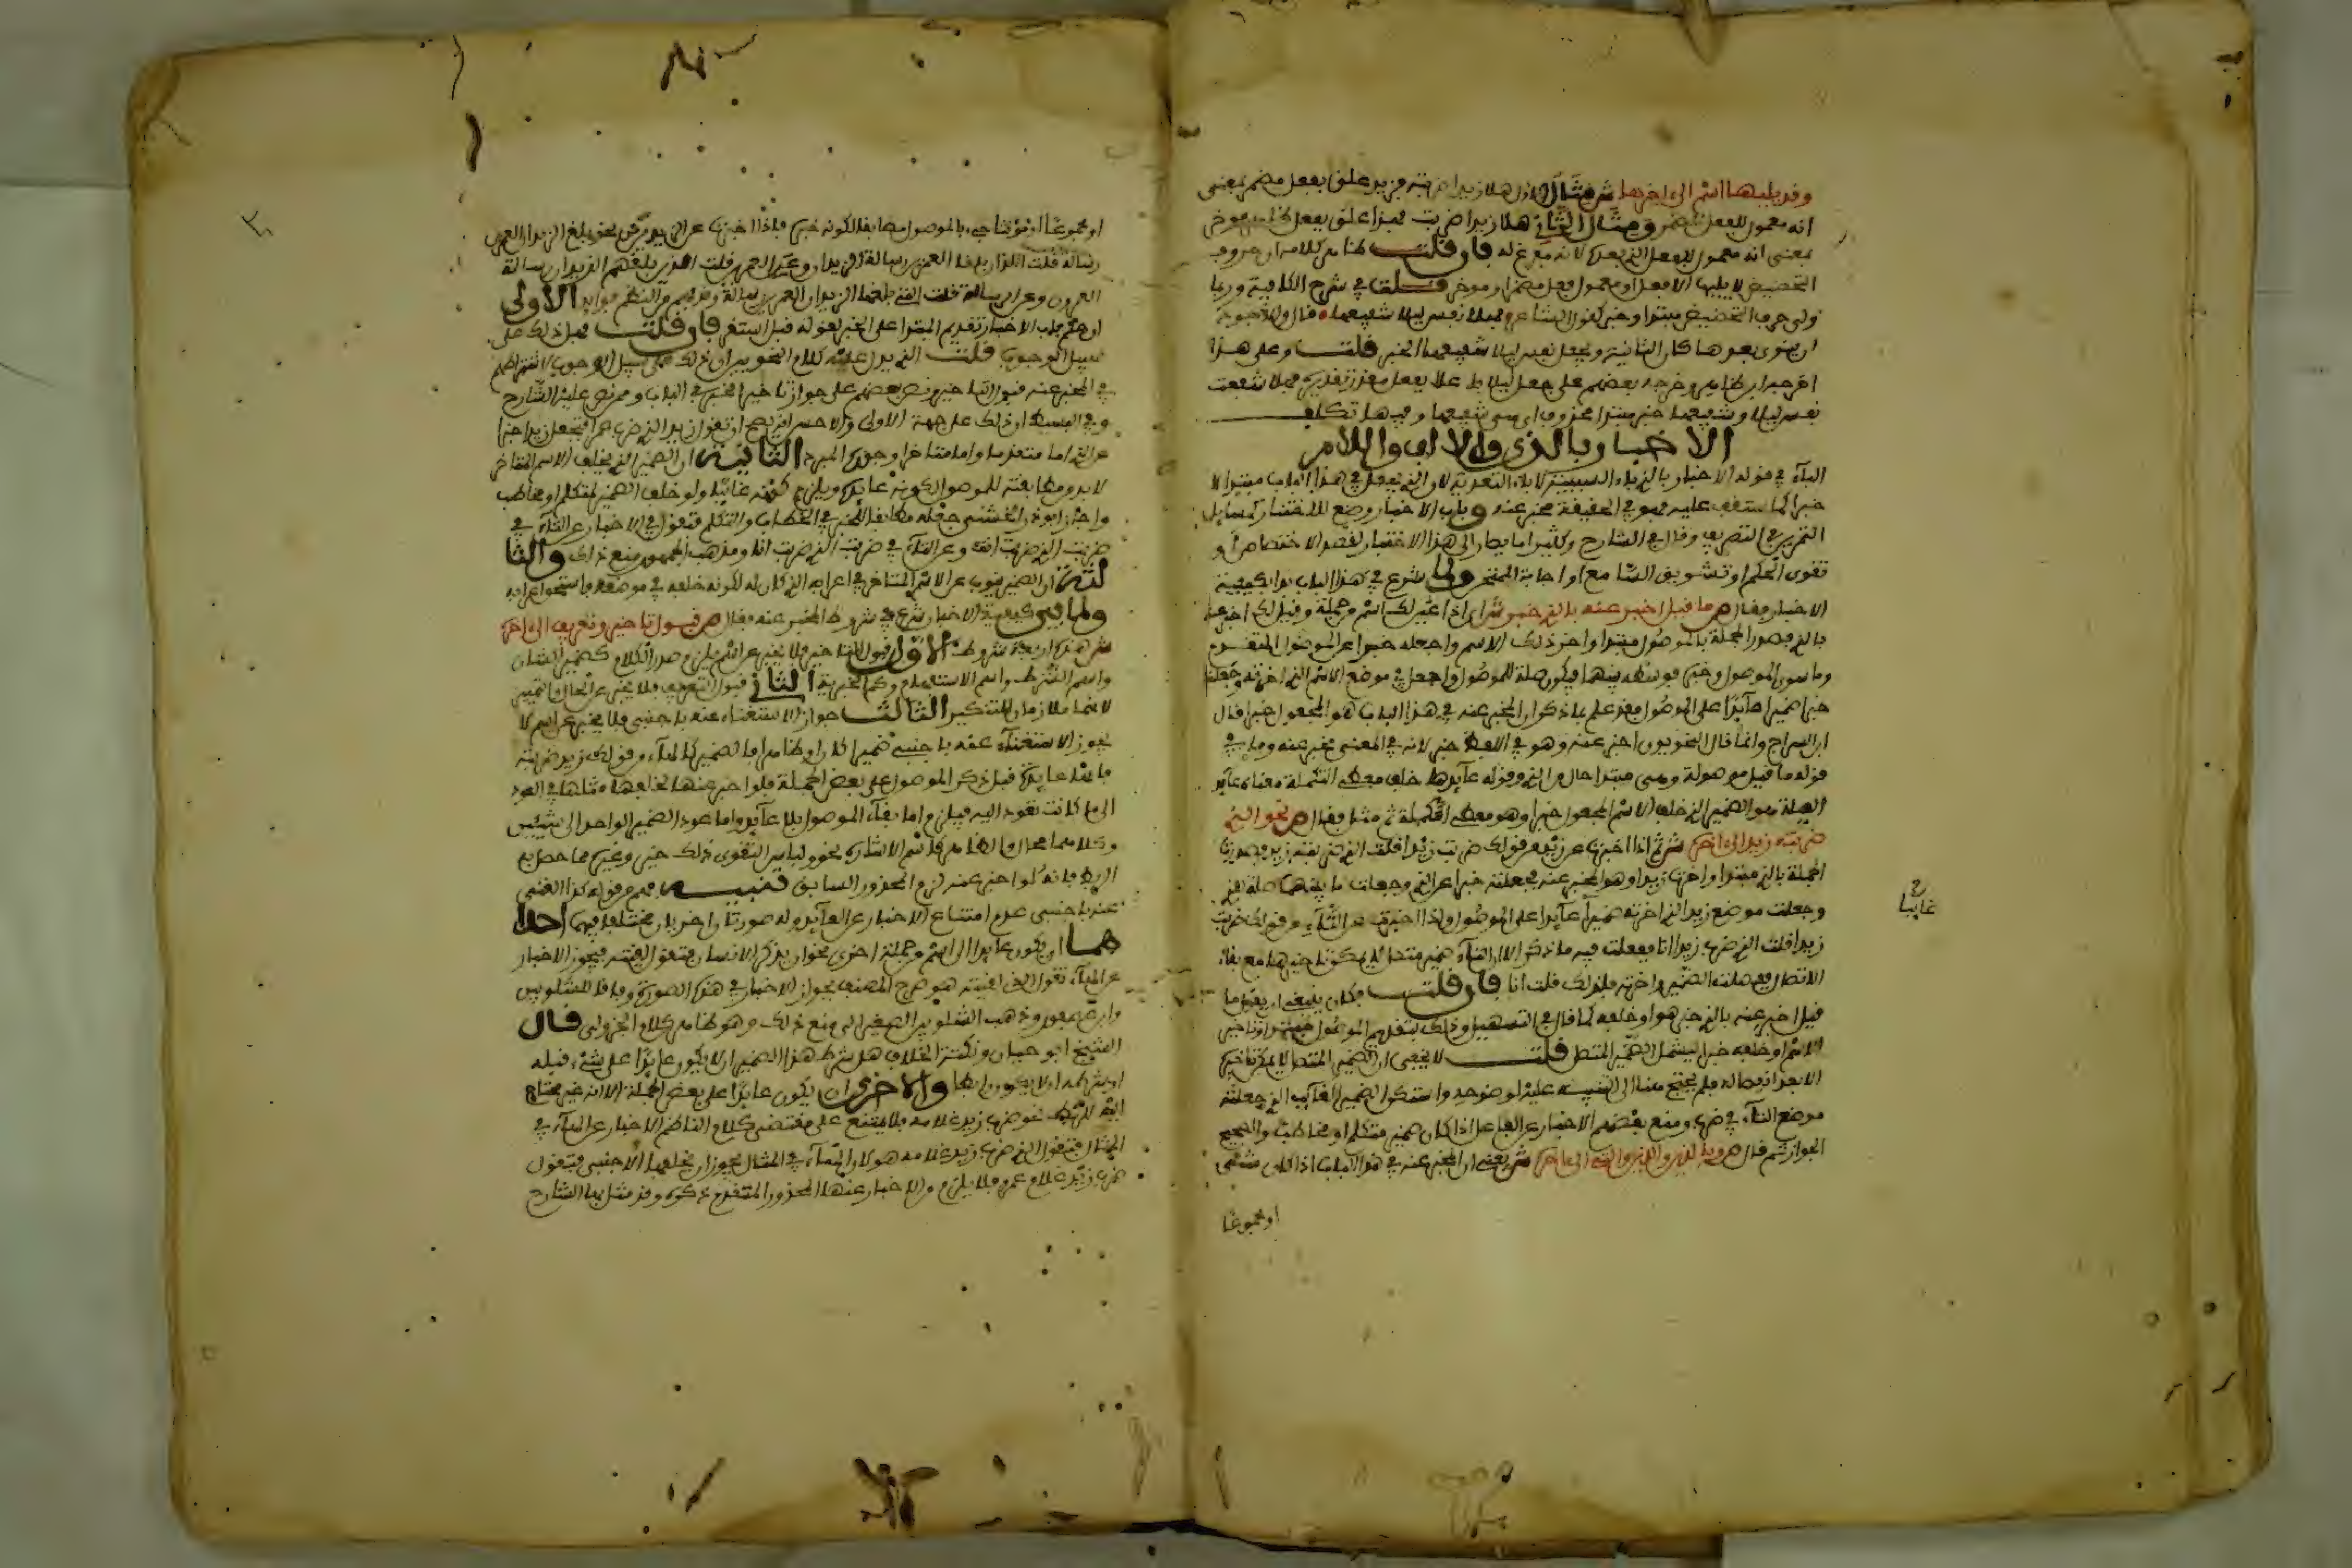 وقد يليها اسم الى اخرها ش مثال الاول هلا زيدا ضربته فزيد علق بفعل مضمر بمعنى
انه معمول للفعل المضمر ومثال الثاني هلا زيدا ضربت فزيدا علق بفعل ظاهر موخر
بمعنى انه معمول للفعل الذي بعده لانه مفرغ له فان قلت ظاهر كلامه ان حروف
التحضيض لا يليها الا فعل او معمول فعل مضمر او موخر قلت في شرح الكافية وربما
ولي حرف التحضيض مبتدا وخبر كقول الشاعر فهلا نفس ليلى شفيعها قال
بعدها كان الثانية ويجعل نفس ليلى شفيعها الخبر قلت وعلى هذا
بعضهم على جعل ليلى فاعلا بفعل مقدر تقديره فهلا شفعت
نفس ليلى وشفيعها خبر مبتدا محذوف اي هي شفيعها وفيها تكلف
الاخبار بالذي والالف واللام
الباء في قوله الاخبار بالذي باء السببية لا باء التعدية لان الذي يجعل في هذا الباب مبتدا لا
خبرا كما ستقف عليه فهو في الحقيقة مخبر عنه وباب الاخبار وضع للاختبار كمسايل
التمرين في التصريف وقال في الشارح وكثيرا ما يصار الى هذا الاخبار لقصد الاختصاص او
تقوى الحكم او تشويق السامع او اجابة الممتحن ولما شرع في هذا الباب بدا بكيفية
الاخبار فقال ص ما قيل اخبر عنه بالذي خبر ش اي اذا عين لك اسم من جملة وقيل لك اخبر عنه
بالذي فصدر الجملة بالموصول مبتدا واخر ذلك الاسم واجعله خبرا عن الموصول المتقدم
وما سوى الموصول وخبره فوسطه بينهما فيكون صلة للموصول واجعل في موضع الاسم الذي اخرته وجعلته
خبرا ضميرا عايدا على الموصول فقد علم بما ذكر ان المخبر عنه في هذا الباب هو المجعول خبرا قال
ابن السراج وانما قال النحويون اخبر عنه وهو في اللفظ خبر لانه في المعنى مخبر عنه وما في
قوله ما قيل موصولة وهي مبتدا حال من الذي وقوله عايدها خلف معطي التكملة معناه عايد
الصلة هو الضمير الذي خلف الاسم المجعول خبرا وهو معطي التكملة ثم مثل فقال ص نحو الذي
ضربته زيد الى اخره ش ثم اذا اخبرت عن زيد من قولك ضربت زيدا قلت الذي ضربته زيد فصدرت
الجملة بالذي مبتدا واخرت زيدا وهو المخبر عنه فجعلته خبرا عن الذي وجعلت ما بينهما صلة الذي
وجعلت موضع زيد الذي اخرته ضميرا عايدا على الموصول واذا اخبرت عن التاء من قولك ضربت
زيدا قلت الذي ضرب زيدا انا ففعلت فيه ما ذكر الا ان التاء ضمير متصل لا يمكن تاخيرها مع بقاء
الاتصال فلذلك قلت انا فان قلت فكان ينبغي ان يقول ما
قيل اخبر عنه بالذي خبر هو او خلفه كما قال في التسهيل وذلك بتقديم الموصول مبتدا وتاخير
الاسم او خلفه خبرا ليشمل الضمير المتصل قلت لا يخفى ان الضمير المتصل لا يمكن تاخيره
الا بعد انفصاله فلم يحتج هنا الى التنبيه عليه لوضوحه واستكن الضمير الغايب الذي جعلته
موضع التاء في ضرب ومنع بعضهم الاخبار عن الفاعل اذا كان ضمير متكلم او مخاطب والصحيح
الجواز ثم قال ص وباللذين والذين والتي الى اخره ش يعني ان المخبر عنه في هذا الباب اذا كان مثنى
او مجموعا
ح
غايبا
او مجموعا او مؤنثا جيء بالموصول مطابقا لكونه خبره فاذا اخبرت عن الزيدين من نحو بلغ الزيدان العمرين
رسالة قلت اللذان بلغا العمرين رسالة الزيدان وعن العمرين قلت الذين بلغهم الزيدان رسالة
العمرون وعن الرسالة قلت التي بلغها الزيدان العمرين رسالة وفي النظم فوايد الاولى
ان حكم باب الاخبار تقديم المبتدا على الخبر لقوله قبل استقر فان قلت فهل ذلك على
سبيل الوجوب قلت الذي يدل عليه كلام النحويين ان ذلك على سبيل الوجوب لاشتراطهم
في المخبر عنه قبول التاخير ونص بعضهم على جواز تاخير المخبر في الباب وممن نص عليه الشارح
وفي البسيط ان ذلك على جهة الاولى والاحسن
عن الذي اما متقدما واما متاخرا وجوزه المبرد الثانية ان الضمير الذي يخلف الاسم المتاخر
لا بد من مطابقته للموصول لكونه عايده ويلزم كونه غايبا ولو خلف الضمير لمتكلم او مخاطب
واجاز ابو ذر الخشني جعله مطابقا للخبر في الخطاب والتكلم فتقول في الاخبار عن التاء في
ضربت الذي ضربت انت وعن التاء في ضربت الذي ضربت انا ومذهب الجمهور منع ذلك والثا
لثة ان الضمير ينوب عن الاسم المتاخر في اعرابه الذي كان له لكونه خلفه في موضعه فاستحق اعرابه
ولما بين كيفية الاخبار شرع في شروط المخبر عنه فقال ص قبول تاخير وتعريف الى اخره
ش هذه اربعة شروط الاول قبول التاخير فلا يخبر عن اسم يلزم صدر الكلام كضمير الشان
واسم الشرط واسم الاستفهام وكم الخبرية الثاني قبول التعريف فلا يخبر عن الحال والتمييز
لانهما ملازمان للتنكير الثالث جواز الاستغناء عنه باجنبي فلا يخبر عن اسم لا
يجوز الاستغناء عنه باجنبي ضميرا كان او ظاهرا فالضمير كالهاء من قولك زيد ضربته
فانها عايدة قبل ذكر الموصول على بعض الجملة فلو اخبر عنها لخلفها مثلها في العود
الى ما كانت تعود اليه فيلزم اما بقاء الموصول بلا عايد واما عود الضمير الواحد الى شيئين
وكلاهما محال والظاهر كاسم الاشارة نحو ولباس التقوى ذلك خير وغيره مما حصل به
الربط فانه لو اخبر عنه لزم المحذور السابق تنبيه فهم من قوله كذا الغنى
عنه باجنبي عدم امتناع الاخبار عن العايد وله صورتان اخريان مختلف فيهما احدا
هما ان يكون عايدا الى اسم من جملة اخرى نحو ان يذكر الانسان فتقول لقيته فيجوز الاخبار
عن الهاء تقول الذي لقيته هو صرح المصنف بجواز الاخبار في هذه الصورة وفاقا للشلوبين
وابن عصفور وذهب الشلوبين الصغير الى منع ذلك وهو ظاهر كلام الجزولي قال
الشيخ ابو حيان ونكتة الخلاف هل شرط هذا الضمير ان لا يكون عايدا على شيء قبله
او شرطه ان لا يكون رابطا والاخرى ان يكون عايدا على بعض الجملة الا انه غير محتاج
اليه للربط نحو ضرب زيد غلامه فلا يمتنع على مقتضى كلام الناظم الاخبار عن الهاء في
المثال فتقول الذي ضرب زيد غلامه هو لان الهاء في المثال يجوز ان يخلفها الاجنبي فتقول
ضرب زيد غلام عمرو فلا يلزم من الاخبار عنها المحذور المتقدم ذكره وقد مثل بها الشارح